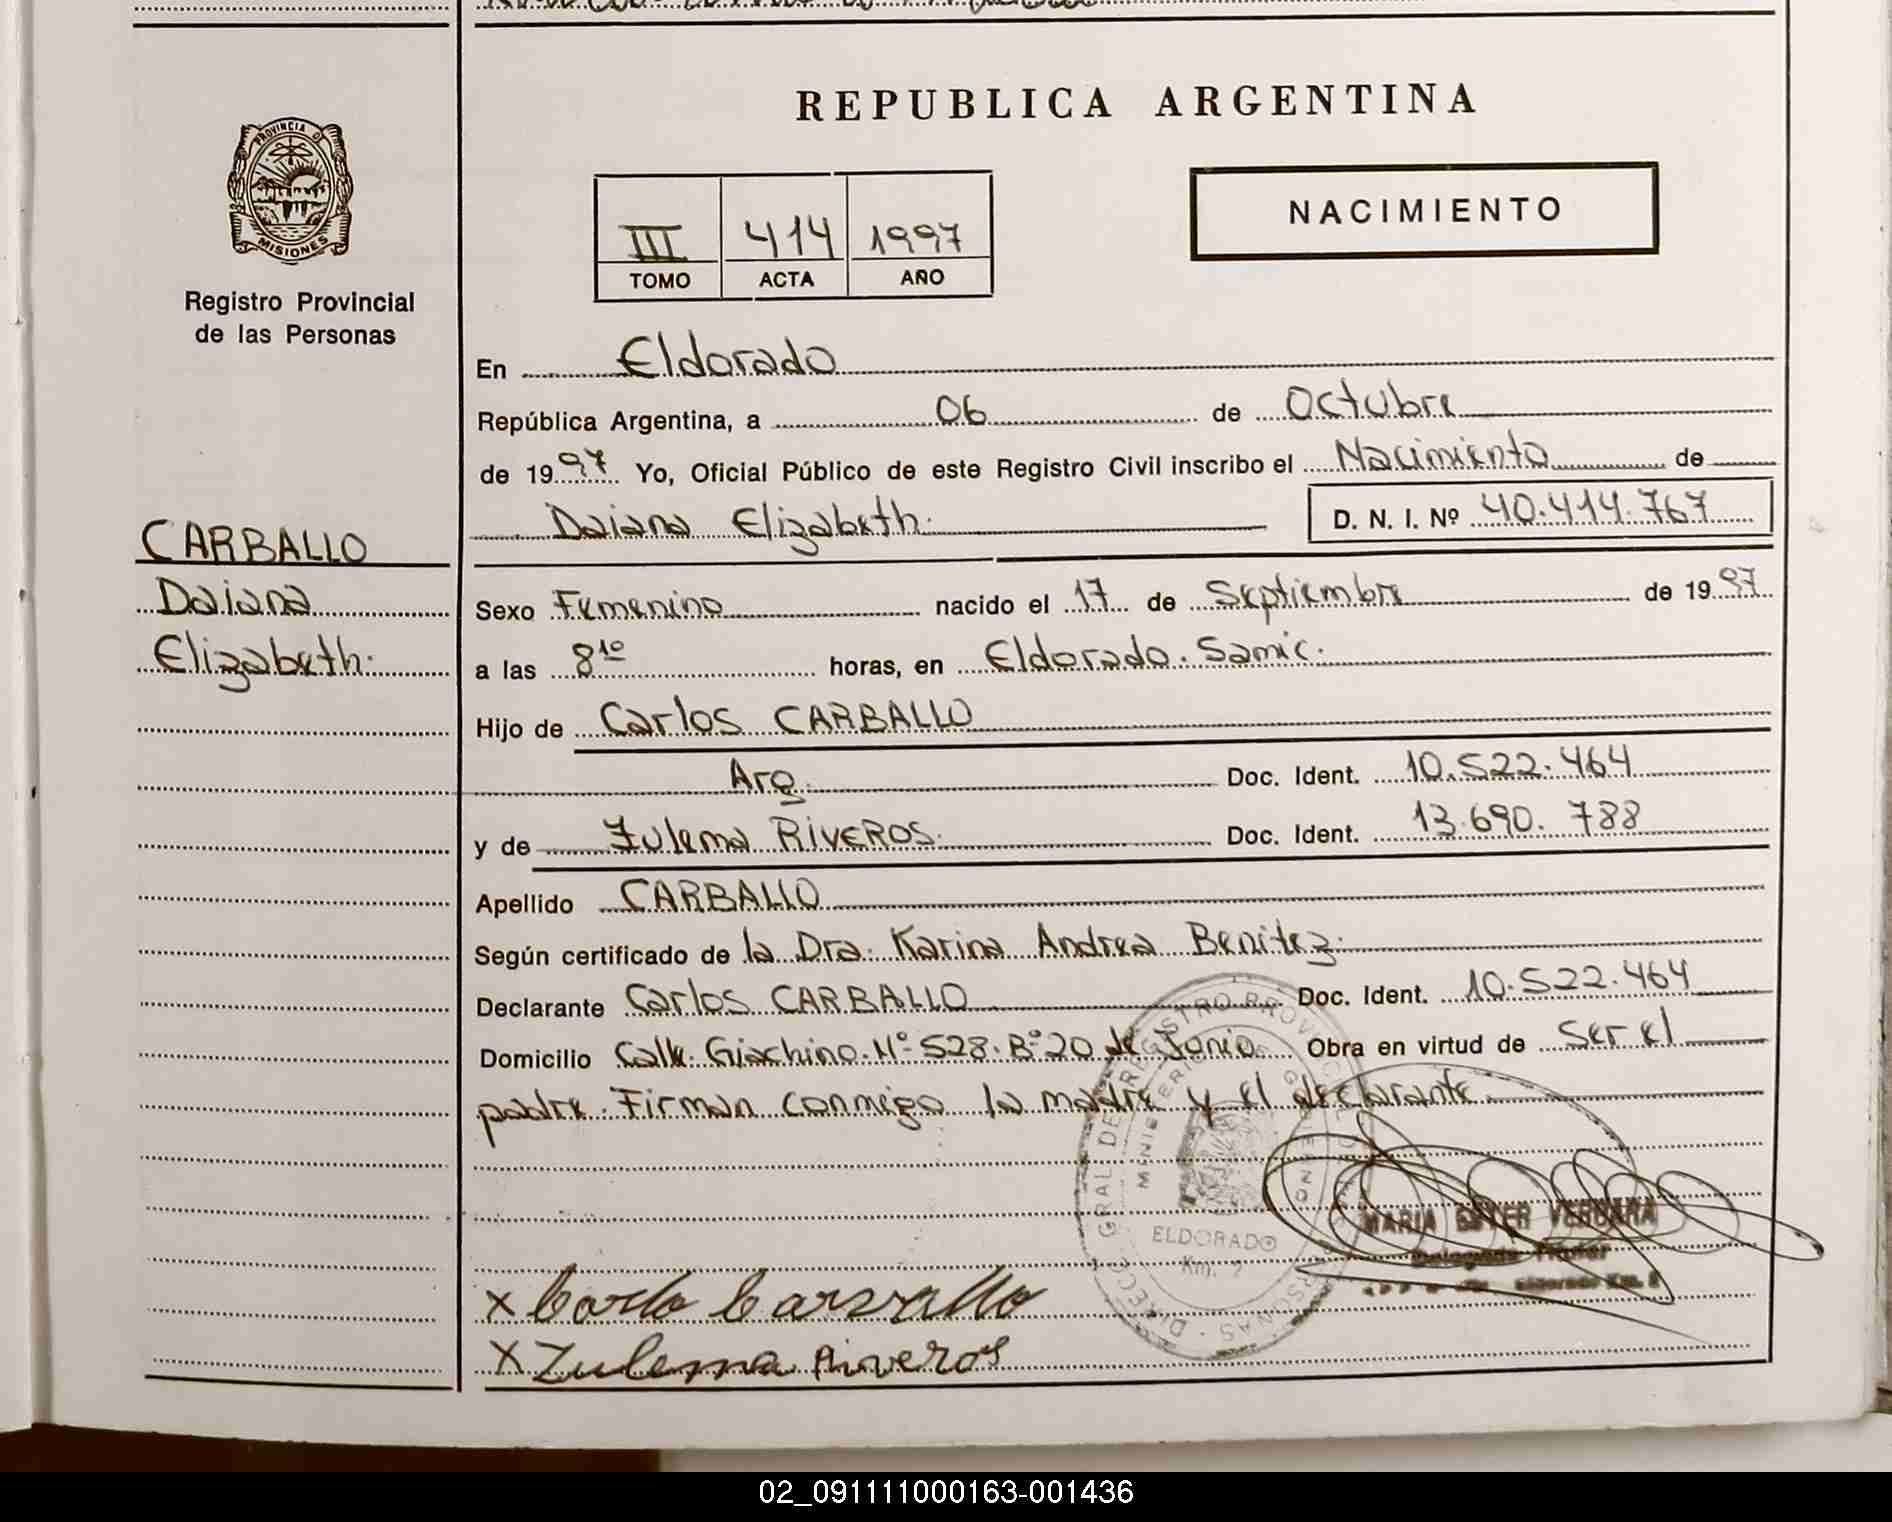 REPUBLICA ARGENTINA
PROVINCIA D
MISIONES
Registro Provincial
de las Personas
III 414 1997
TOMO ACTA AÑO
NACIMIENTO
En Eldorado
República Argentina, a 06 de Octubre
de 1997 Yo, Oficial Público de este Registro Civil inscribo el Nacimiento de
Daiana Elizabeth. D. N. I. Nº 40.414.767
CARBALLO
Daiana
Elizabeth.
Sexo Femenino nacido el 17 de Septiembre de 1997
a las 8¹⁰ horas, en Eldorado. Samic.
Hijo de Carlos CARBALLO
Arg. Doc. Ident. 10.522.464
y de Zulema RIVEROS. Doc. Ident. 13.690.788
Apellido CARBALLO
Según certificado de la Dra. Karina Andrea Benitez.
Declarante Carlos CARBALLO Doc. Ident. 10.522.464
Domicilio Calle. Giachino. Nº 528. Bº 20 de Junio. Obra en virtud de Ser el
padre. Firman conmigo la madre y el declarante.
ELDORADO
Km. 2
MARIA VERGARA
Titular
Eldorado Km. 2
x Carlo Carvallo
x Zulema Riveros
02_091111000163-001436